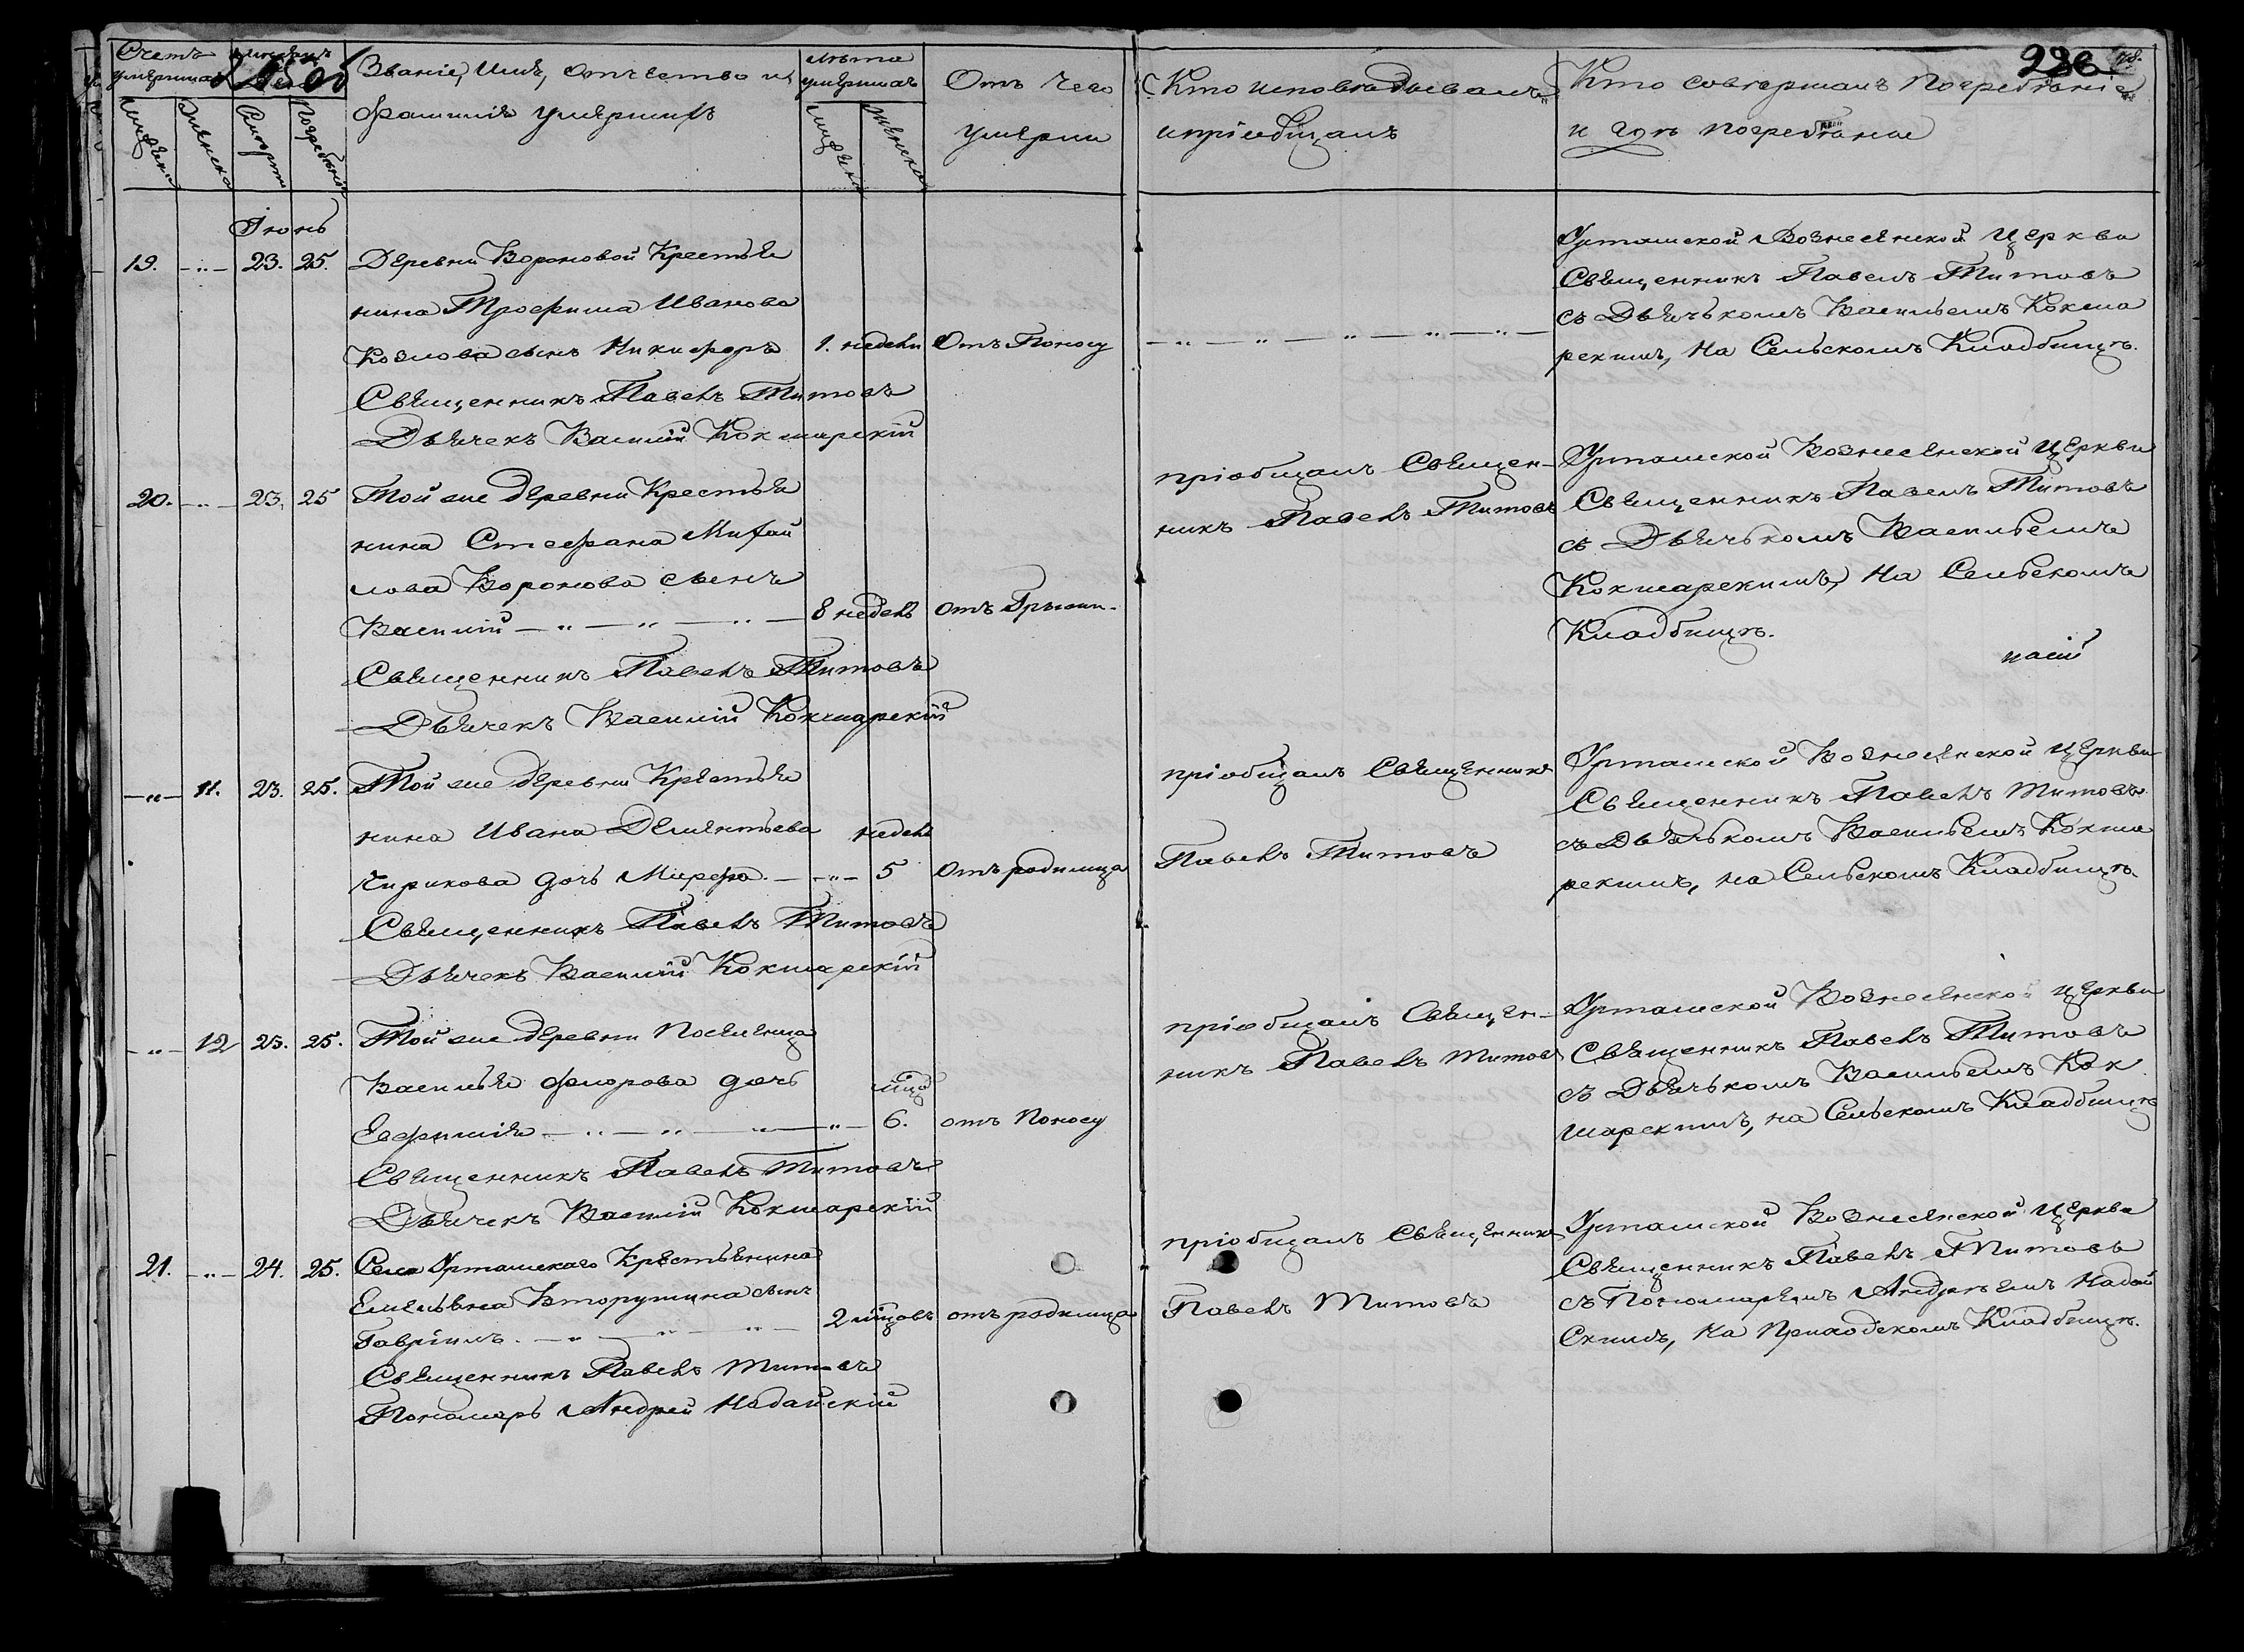 Счетъ умершихъ
Мѣсяцъ
Званіе, имя, отчество и
фамилія умершихъ
Лѣта умершихъ
Отъ чего
умерли
Кто исповѣдывалъ
и пріобщалъ
Кто совершалъ погребѣніе
и гдѣ погребѣны
286.
Мужеска
Женска
Смерти
Погребѣнія
Іюнь
19. 23. 25. Деревни Вороновой Крестья
нина Трофима Иванова
Козлова сынъ Никифоръ 1. недели Отъ Поносу
Священникъ Павелъ Титовъ
Дьячекъ Василій Кокшарскій
Урташской Вознесенской Церкви
Священникъ Павелъ Титовъ
съ Дьячькомъ Васильемъ Кокша
рскимъ, На Сельскомъ Кладбищѣ.
20. 23. 25 Той же деревни Крестья
нина Стефана Михай
лова Воронова сынъ
Василій 8 недель отъ Грыжи
Священникъ Павелъ Титовъ
Дьячекъ Василій Кокшарскій
пріобщалъ Священ-
никъ Павелъ Титовъ
Урташской Вознесенской Церкви
Священникъ Павелъ Титовъ
съ Дьячькомъ Васильемъ
Кокшарскимъ, На Сельскомъ
Кладбищѣ.
11. 23. 25. Той же деревни Крестья
нина Ивана Дементьева недель
Чирикова дочь Марфа 5 Отъ родимца
Священникъ Павелъ Титовъ
Дьячекъ Василій Кокшарскій
пріобщалъ Священникъ
Павелъ Титовъ
Урташской Вознесенской Церкви
Священникъ Павелъ Титовъ
съ Дьячькомъ Васильемъ Кокша
рскимъ, на Сельскомъ Кладбищѣ.
12 23. 25. Той же деревни Поселенца
Василья Флорова дочь
Евфимія 6. отъ Поносу
Священникъ Павелъ Титовъ
Дьячекъ Василій Кокшарскій
пріобщалъ Священ-
никъ Павелъ Титовъ
Урташской Вознесенской Церкви
Священникъ Павелъ Титовъ
съ Дьячькомъ Васильемъ Кок
шарскимъ, на Сельскомъ Кладбищѣ
21. 24. 25. Села Урташскаго Крестьянина
Емельяна Вторушина сынъ
Гавріилъ. 2 мцовъ отъ родимца
Священникъ Павелъ Титовъ
Пономарь Андрей Надайскій
пріобщалъ Священникъ
Павелъ Титовъ
Урташской Вознесенской Церкви
Священникъ Павелъ Титовъ
съ Пономаремъ Андрѣемъ Надай
Скимъ, На Приходскомъ Кладбищѣ.